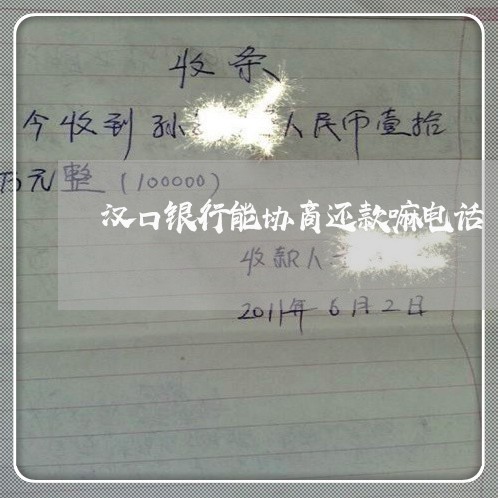 收条
今收到孙 人民币壹拾
万元整(100000)
汉口银行能协商还款嘛电话
收款人
2011年6月2日